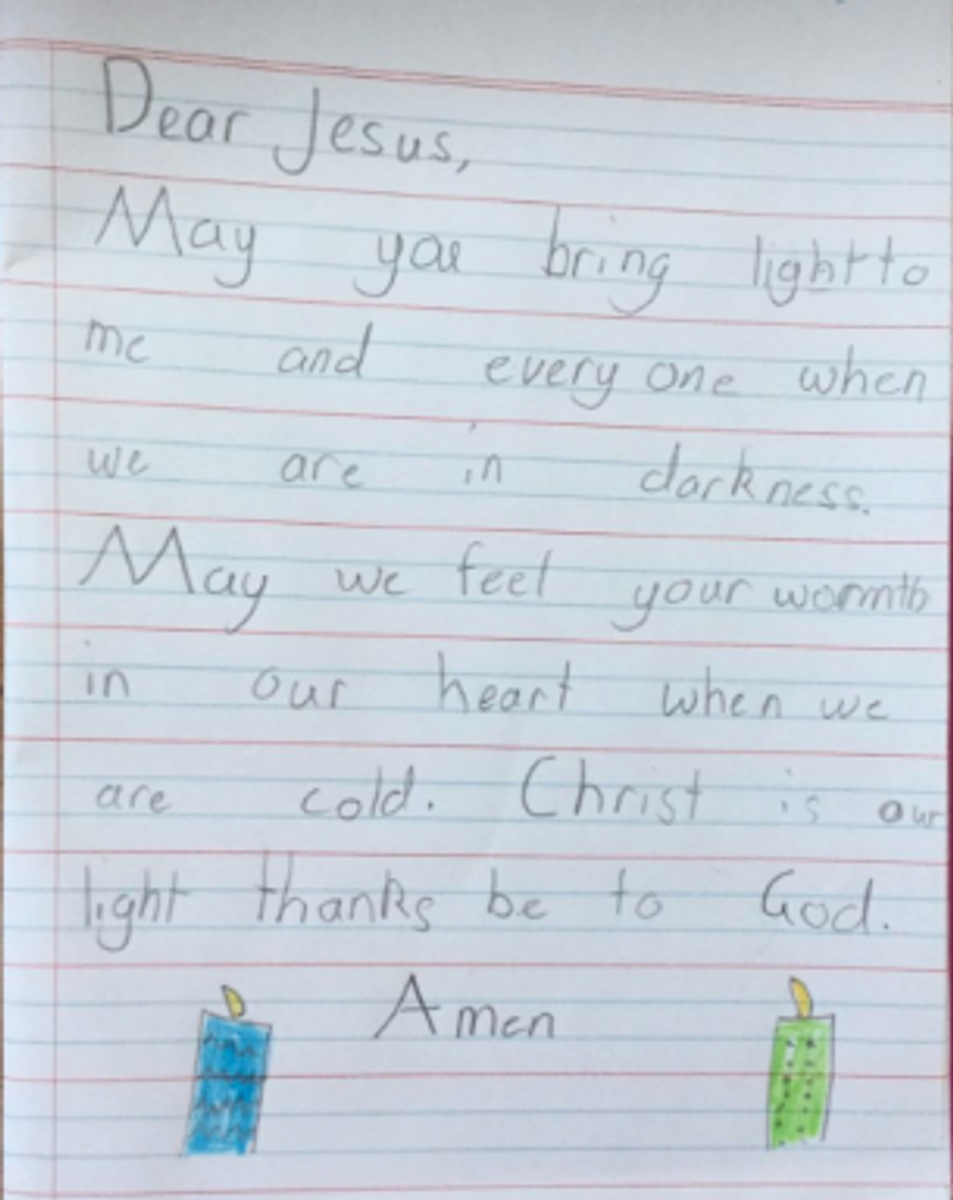 Dear Jesus,
May you bring light to
me and every one when
we are in darkness.
May we feel your wormth
in our heart when we
are cold. Christ is our
light thanks be to God.
Amen